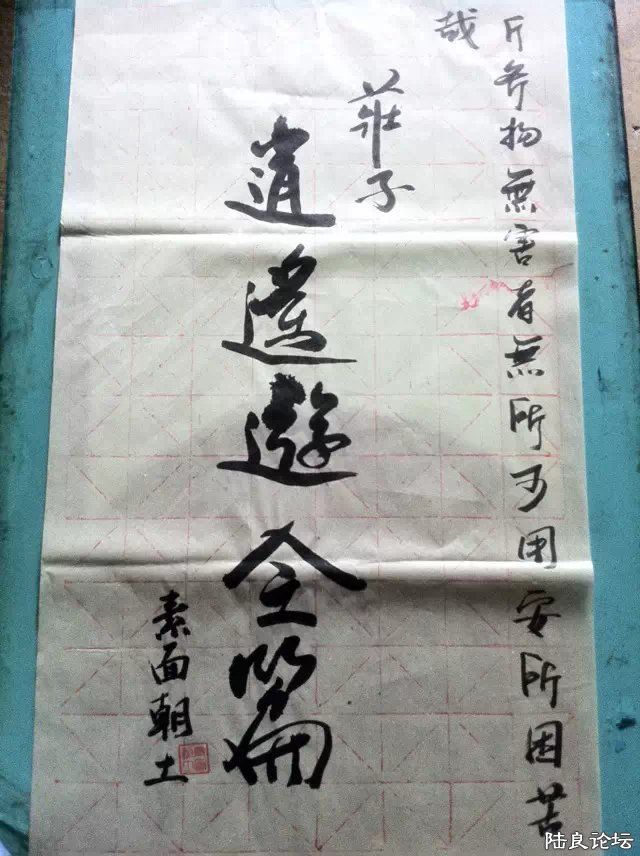 斤斧物無害者無所可用安所困苦
哉
莊子
逍遙遊全篇
素面朝土
陆良论坛